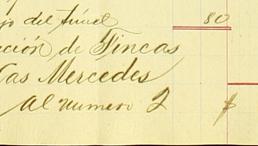 jo del túnel 80
ción de Fincas
Las Mercedes
Al numero 2 $